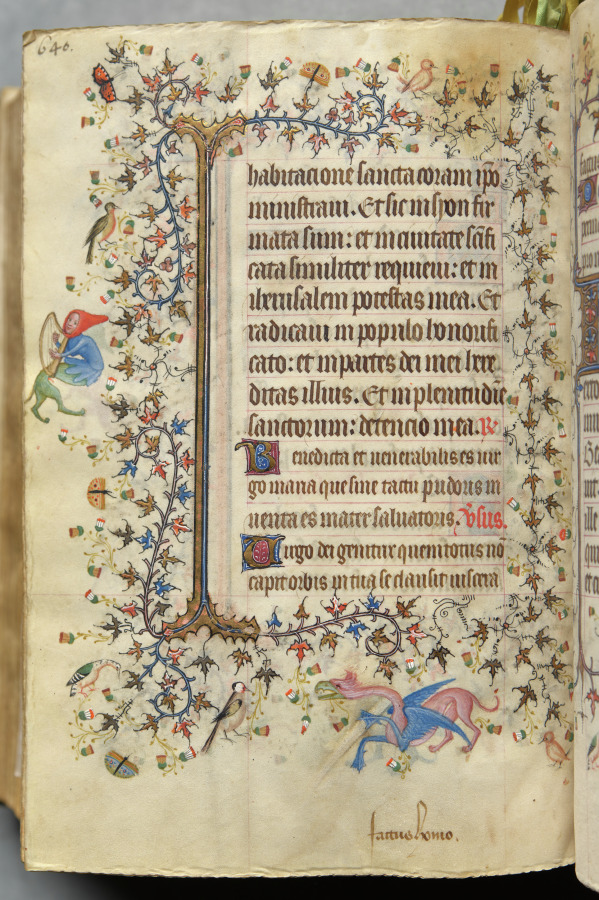 640.
habitacione sancta coram ipo
ministraui. Et sic in syon fir
mata sum: et in ciuitate scīfi
cata similiter requieui: et in
iherusalem potestas mea. Et
radicaui in populo honorifi
cato: et in partes dei mei here
ditas illius. Et in plenitudīe
sanctorum: detencio mea. R
Benedicta et uenerabilis es uir
go maria que sine tactu pudoris in
uenta es mater saluatoris. v̄sus.
Uirgo dei genitrix quem totus nō
capit orbis in tua se clausit uiscera
factus homo.